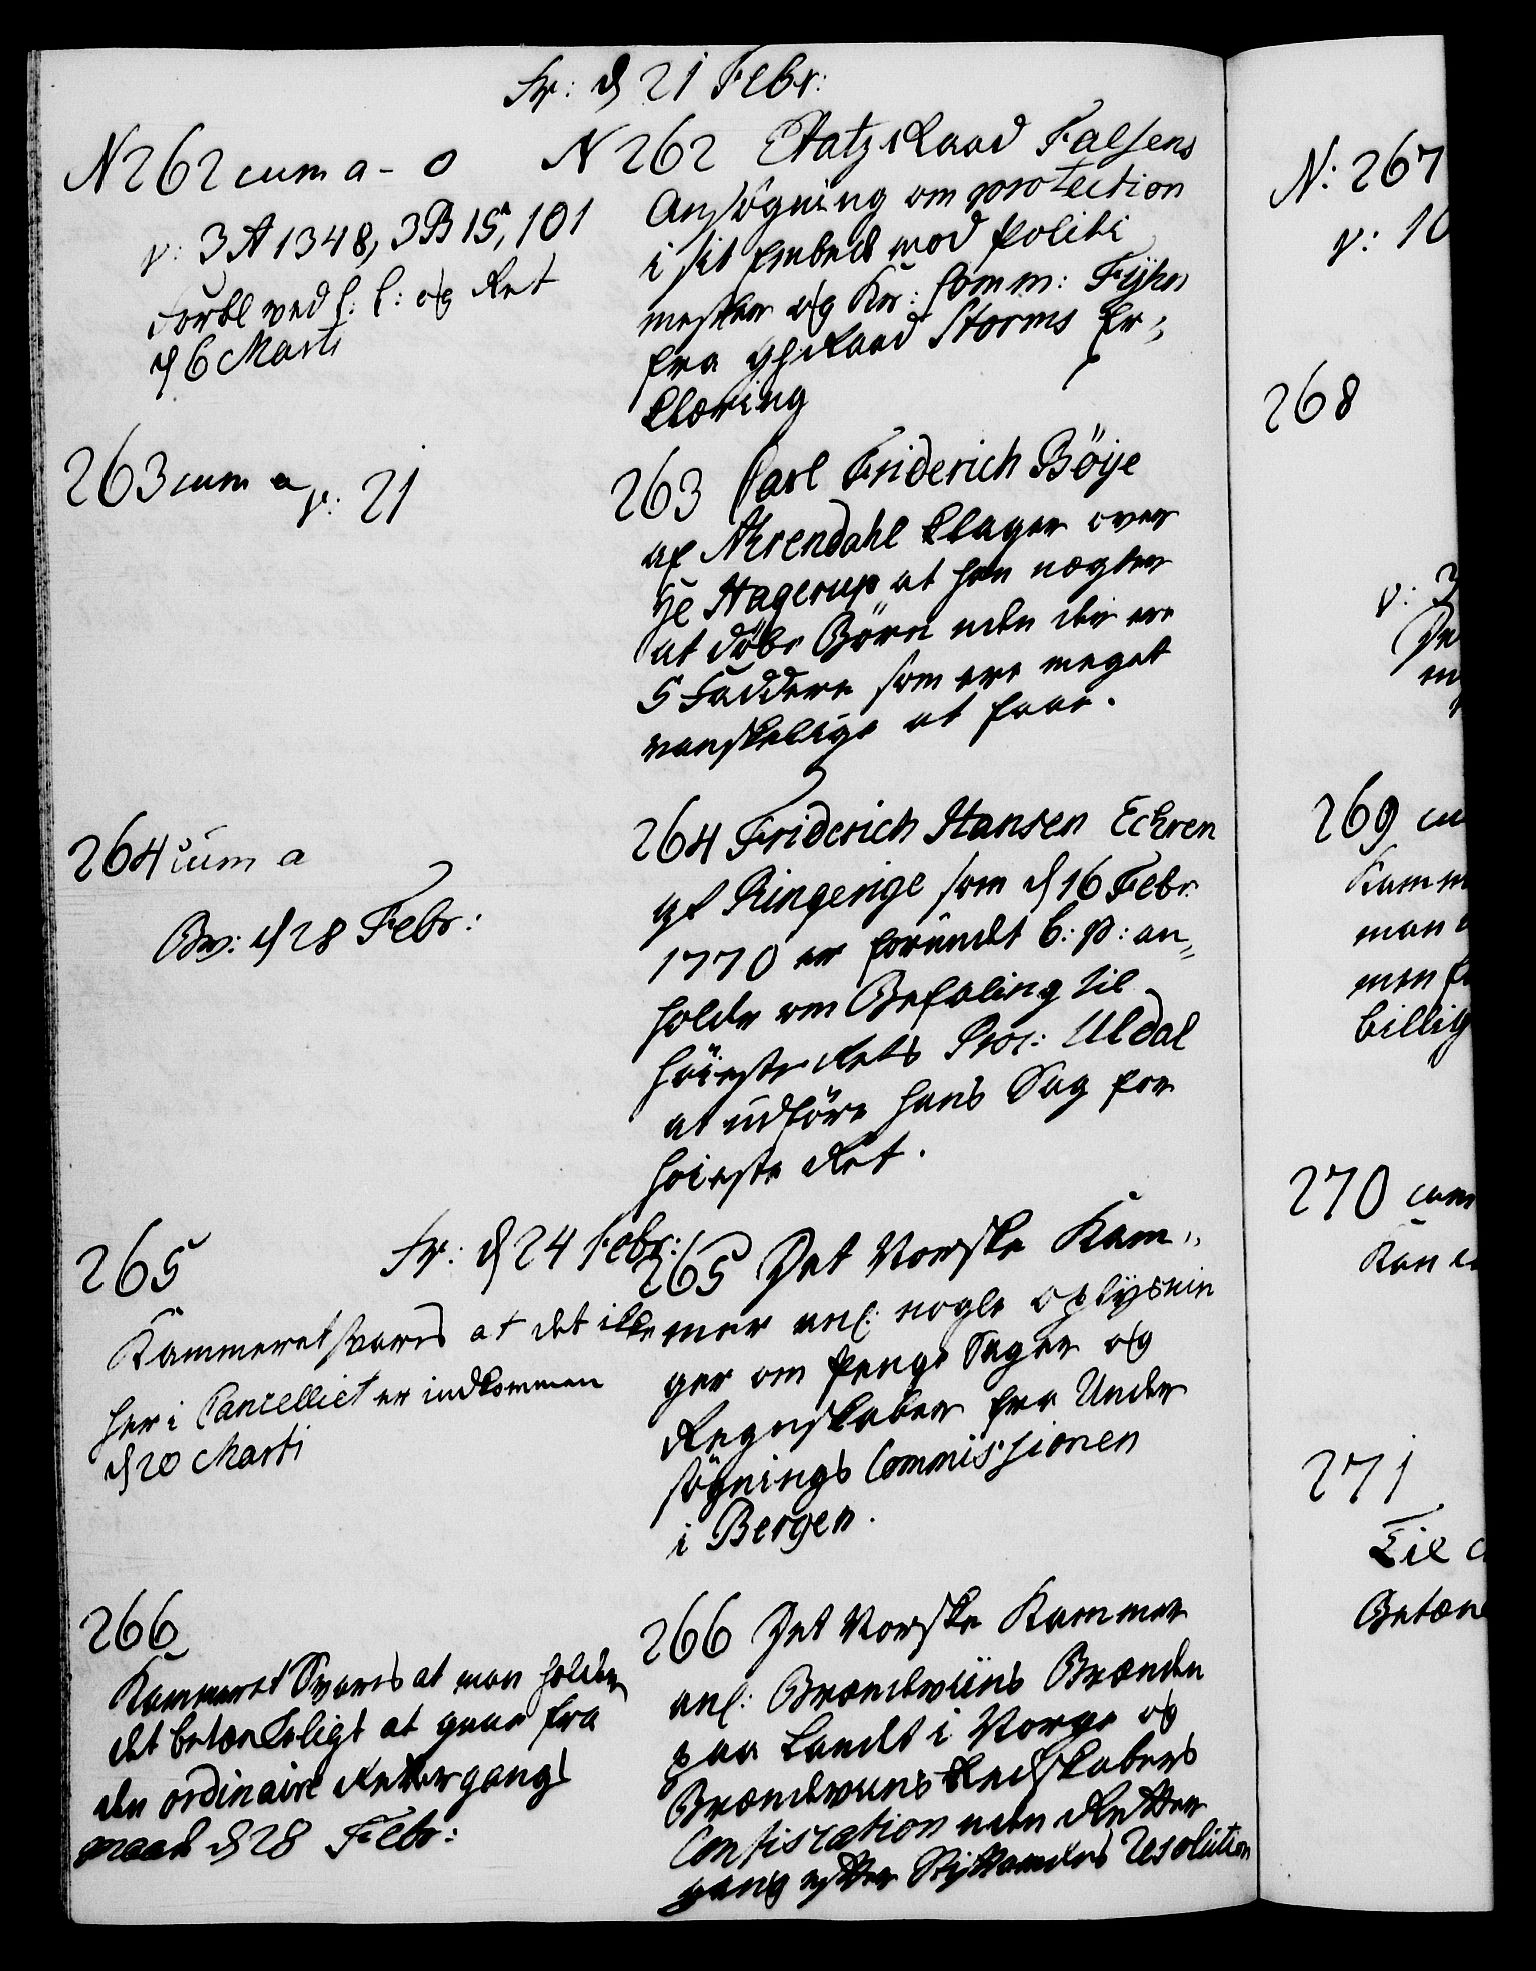 Fr: d 21 Febr:
N 262 cum a - o
v: 3A 1348, 3B 15, 101
Forbl ved f: l: og Ret
d 6 Marti
N 262 Etatz Raad Falsens
Ansögning om protection
i sit Embede mod Politi
mester og Kr: Comm: Fyhn
fra Raad Storms Er-
klæring
263 cum a v: 21
263 Carl Friderich Böye
af Ahrendahl klager over
Hr Hagerup at han nægter
at döbe Börn uden der ere
5 Faddere som ere meget
vanskelige at faae.
264 cum a
Bev: d 28 Febr:
264 Friderich Hansen Echren
af Ringerige som d 16 Febr.
1770 er forundt b: p: an-
holder om Befaling til
höieste Rets Proc: Uldal
at udföre hans Sag for
höieste Ret.
Fr: d 24 Febr:
265
Kammeret svares at det ikke
her i Cancelliet er indkommen
d 20 Marti
265 Det Norske Kam-
mer anl: nogle oplysnin
ger om Penge Sager og
Regnskaber fra Under
sögnings Commissionen
i Bergen.
266
Kammeret Svares at man holder
det betænkeligt at gaae fra
den ordinaire Rettergangs
maade d 28 Febr:
266 Det Norske Kammer
anl: Brændeviins Brænden
paa Landet i Norge og
Brændeviins Redskabers
Confiscation uden Retter
gang efter Resolution
N: 267
v: 10
268
v: 3
269 cu
Kamm
man
men
billig
270 cum
Kan
271
Til
Betæn